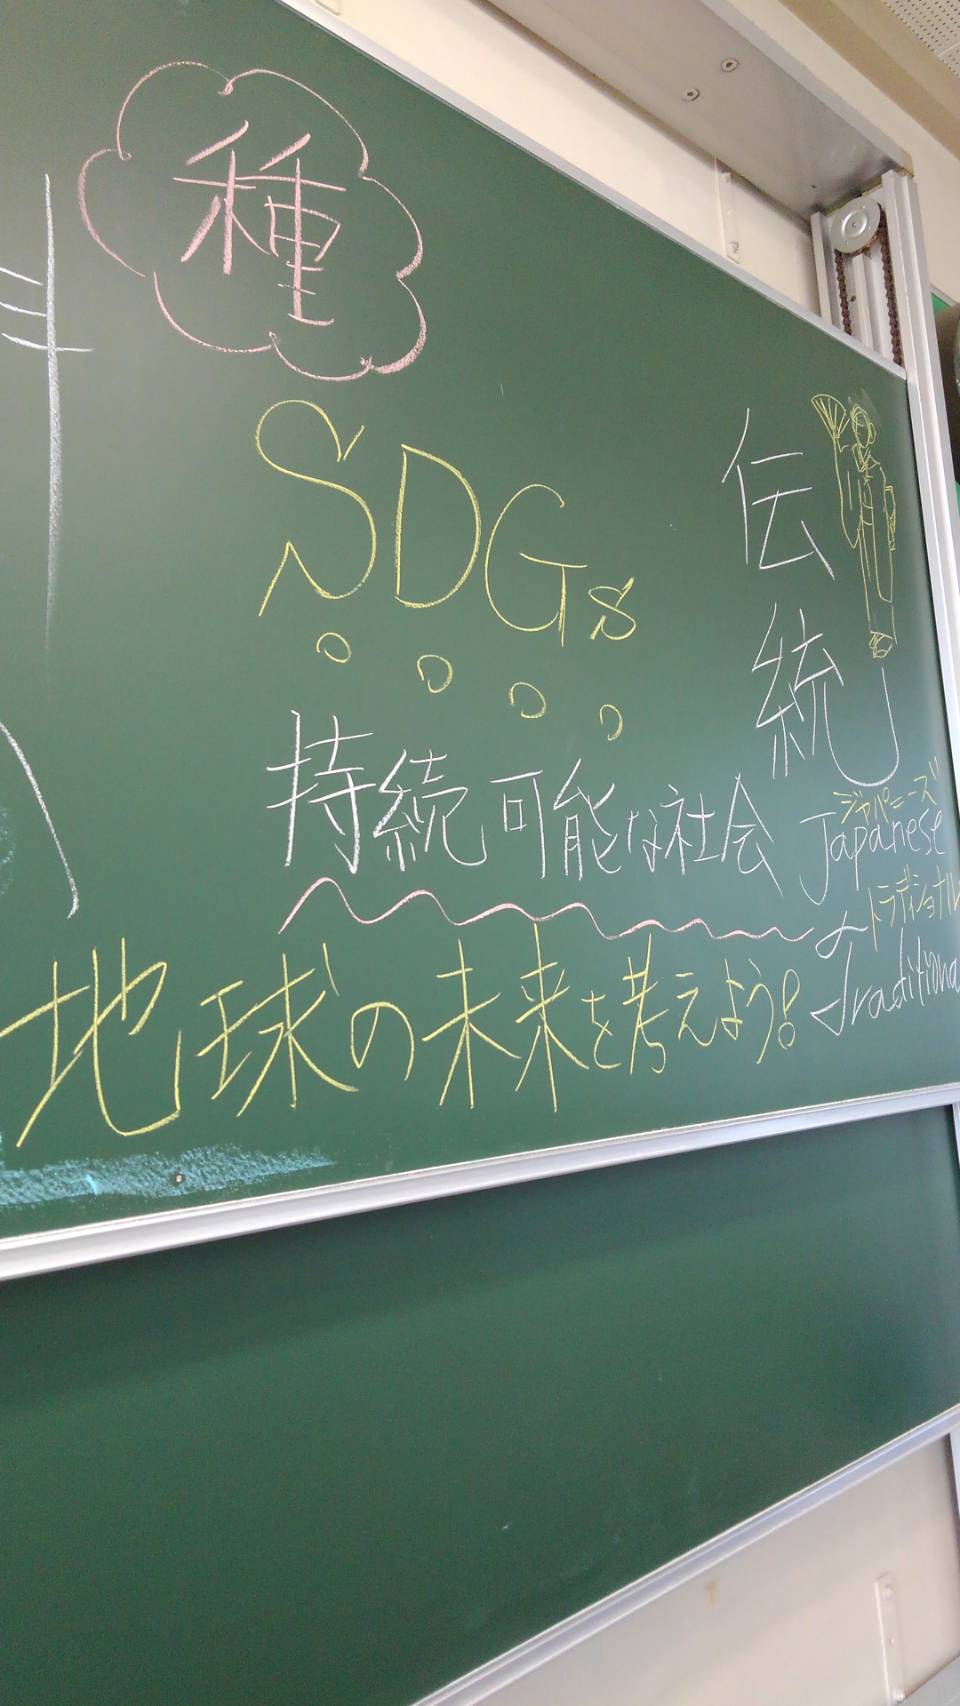 種
SDGs
持続可能な社会
地球の未来を考えよう!
伝統
ジャパニーズ
Japanese
トラディショナル
traditional